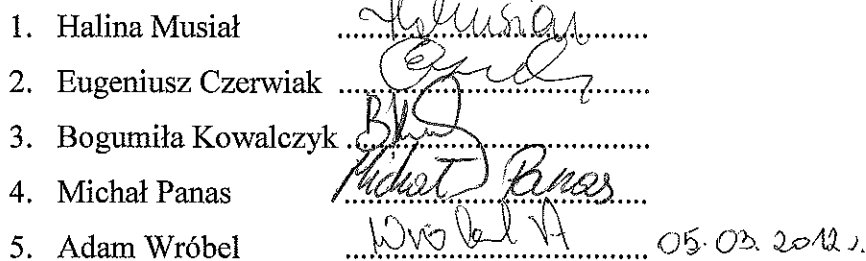 1. Halina Musiał ........ H Musiał ........
2. Eugeniusz Czerwiak ........
3. Bogumiła Kowalczyk ........
4. Michał Panas ........ Michał Panas ........
5. Adam Wróbel ........ Wróbel A ........ 05.03.2012 r.